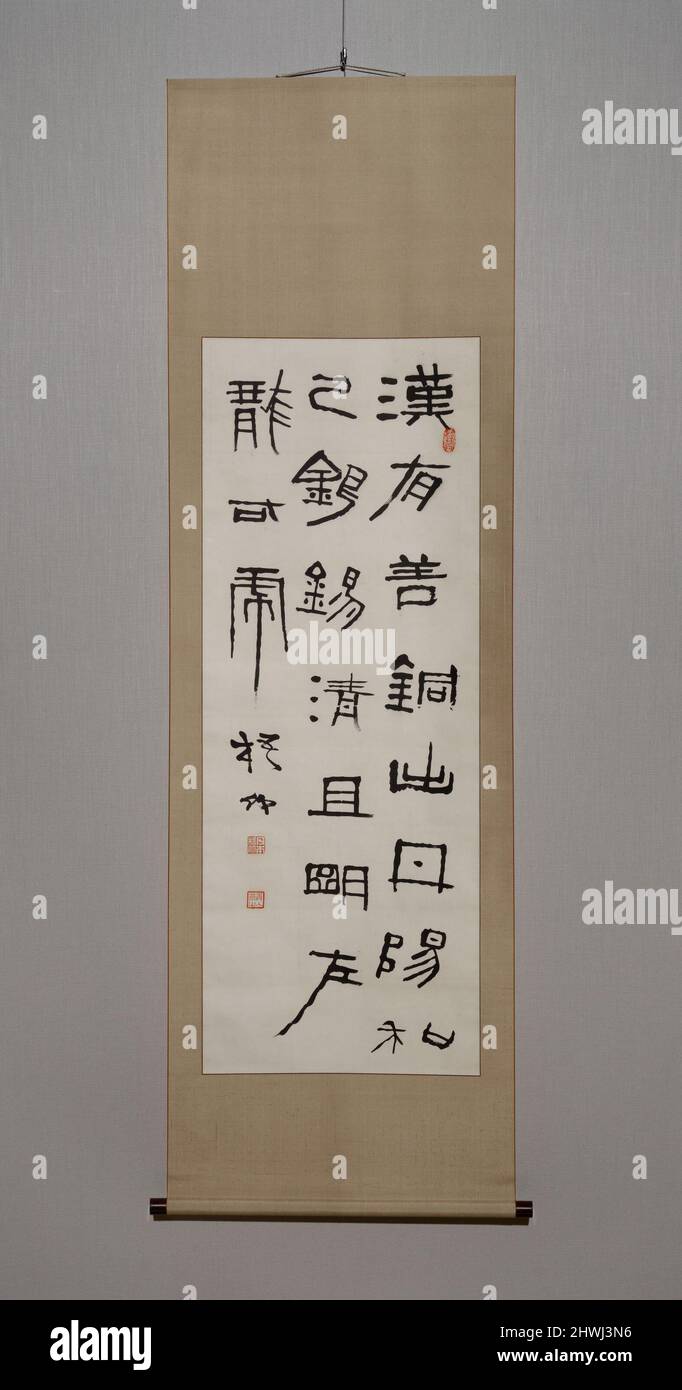 漢有善銅出丹陽和
已銀錫清且明左
龍右虎
梧竹
alamy
alamy
alamy
alamy
Image ID: 2HWJ3N6
www.alamy.com